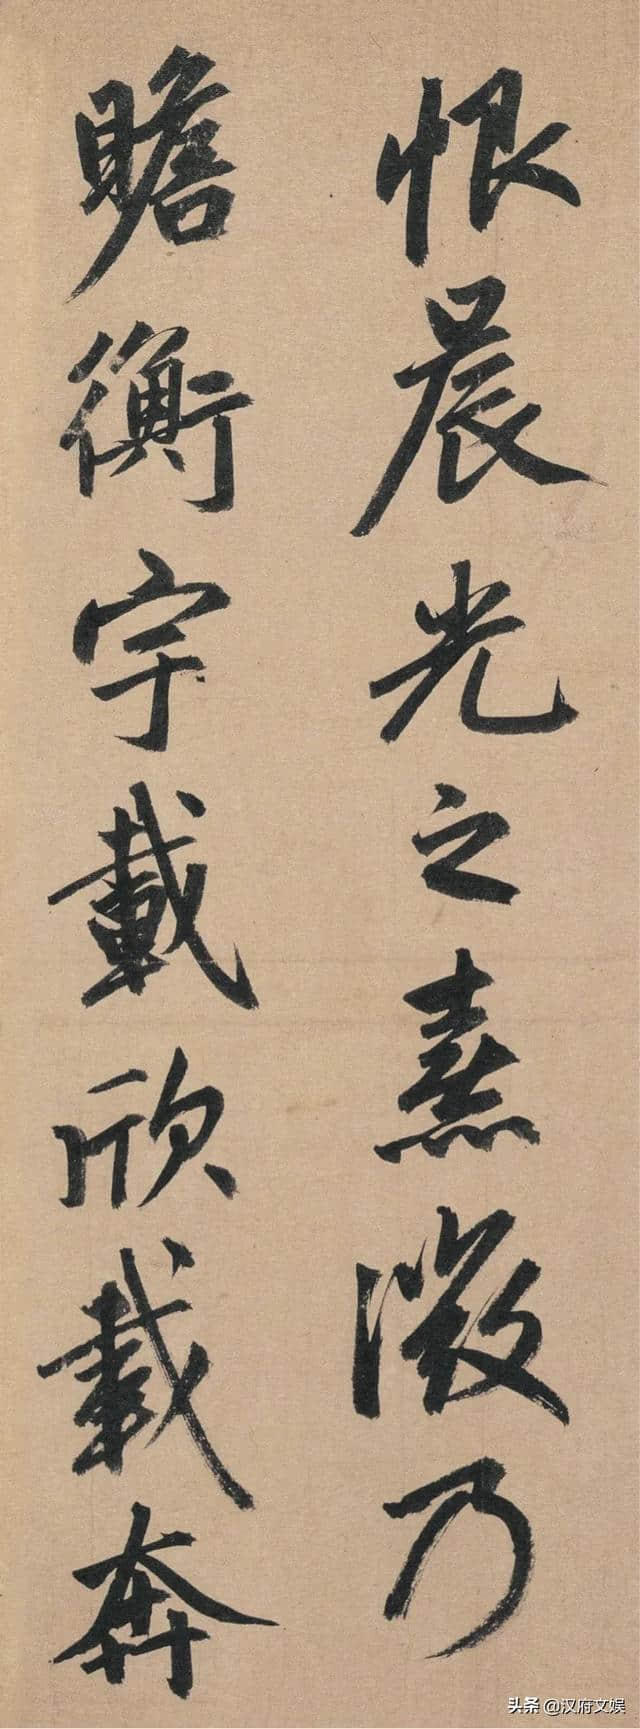 恨晨光之熹微乃
瞻衡宇載欣載奔
头条@汉府文娱